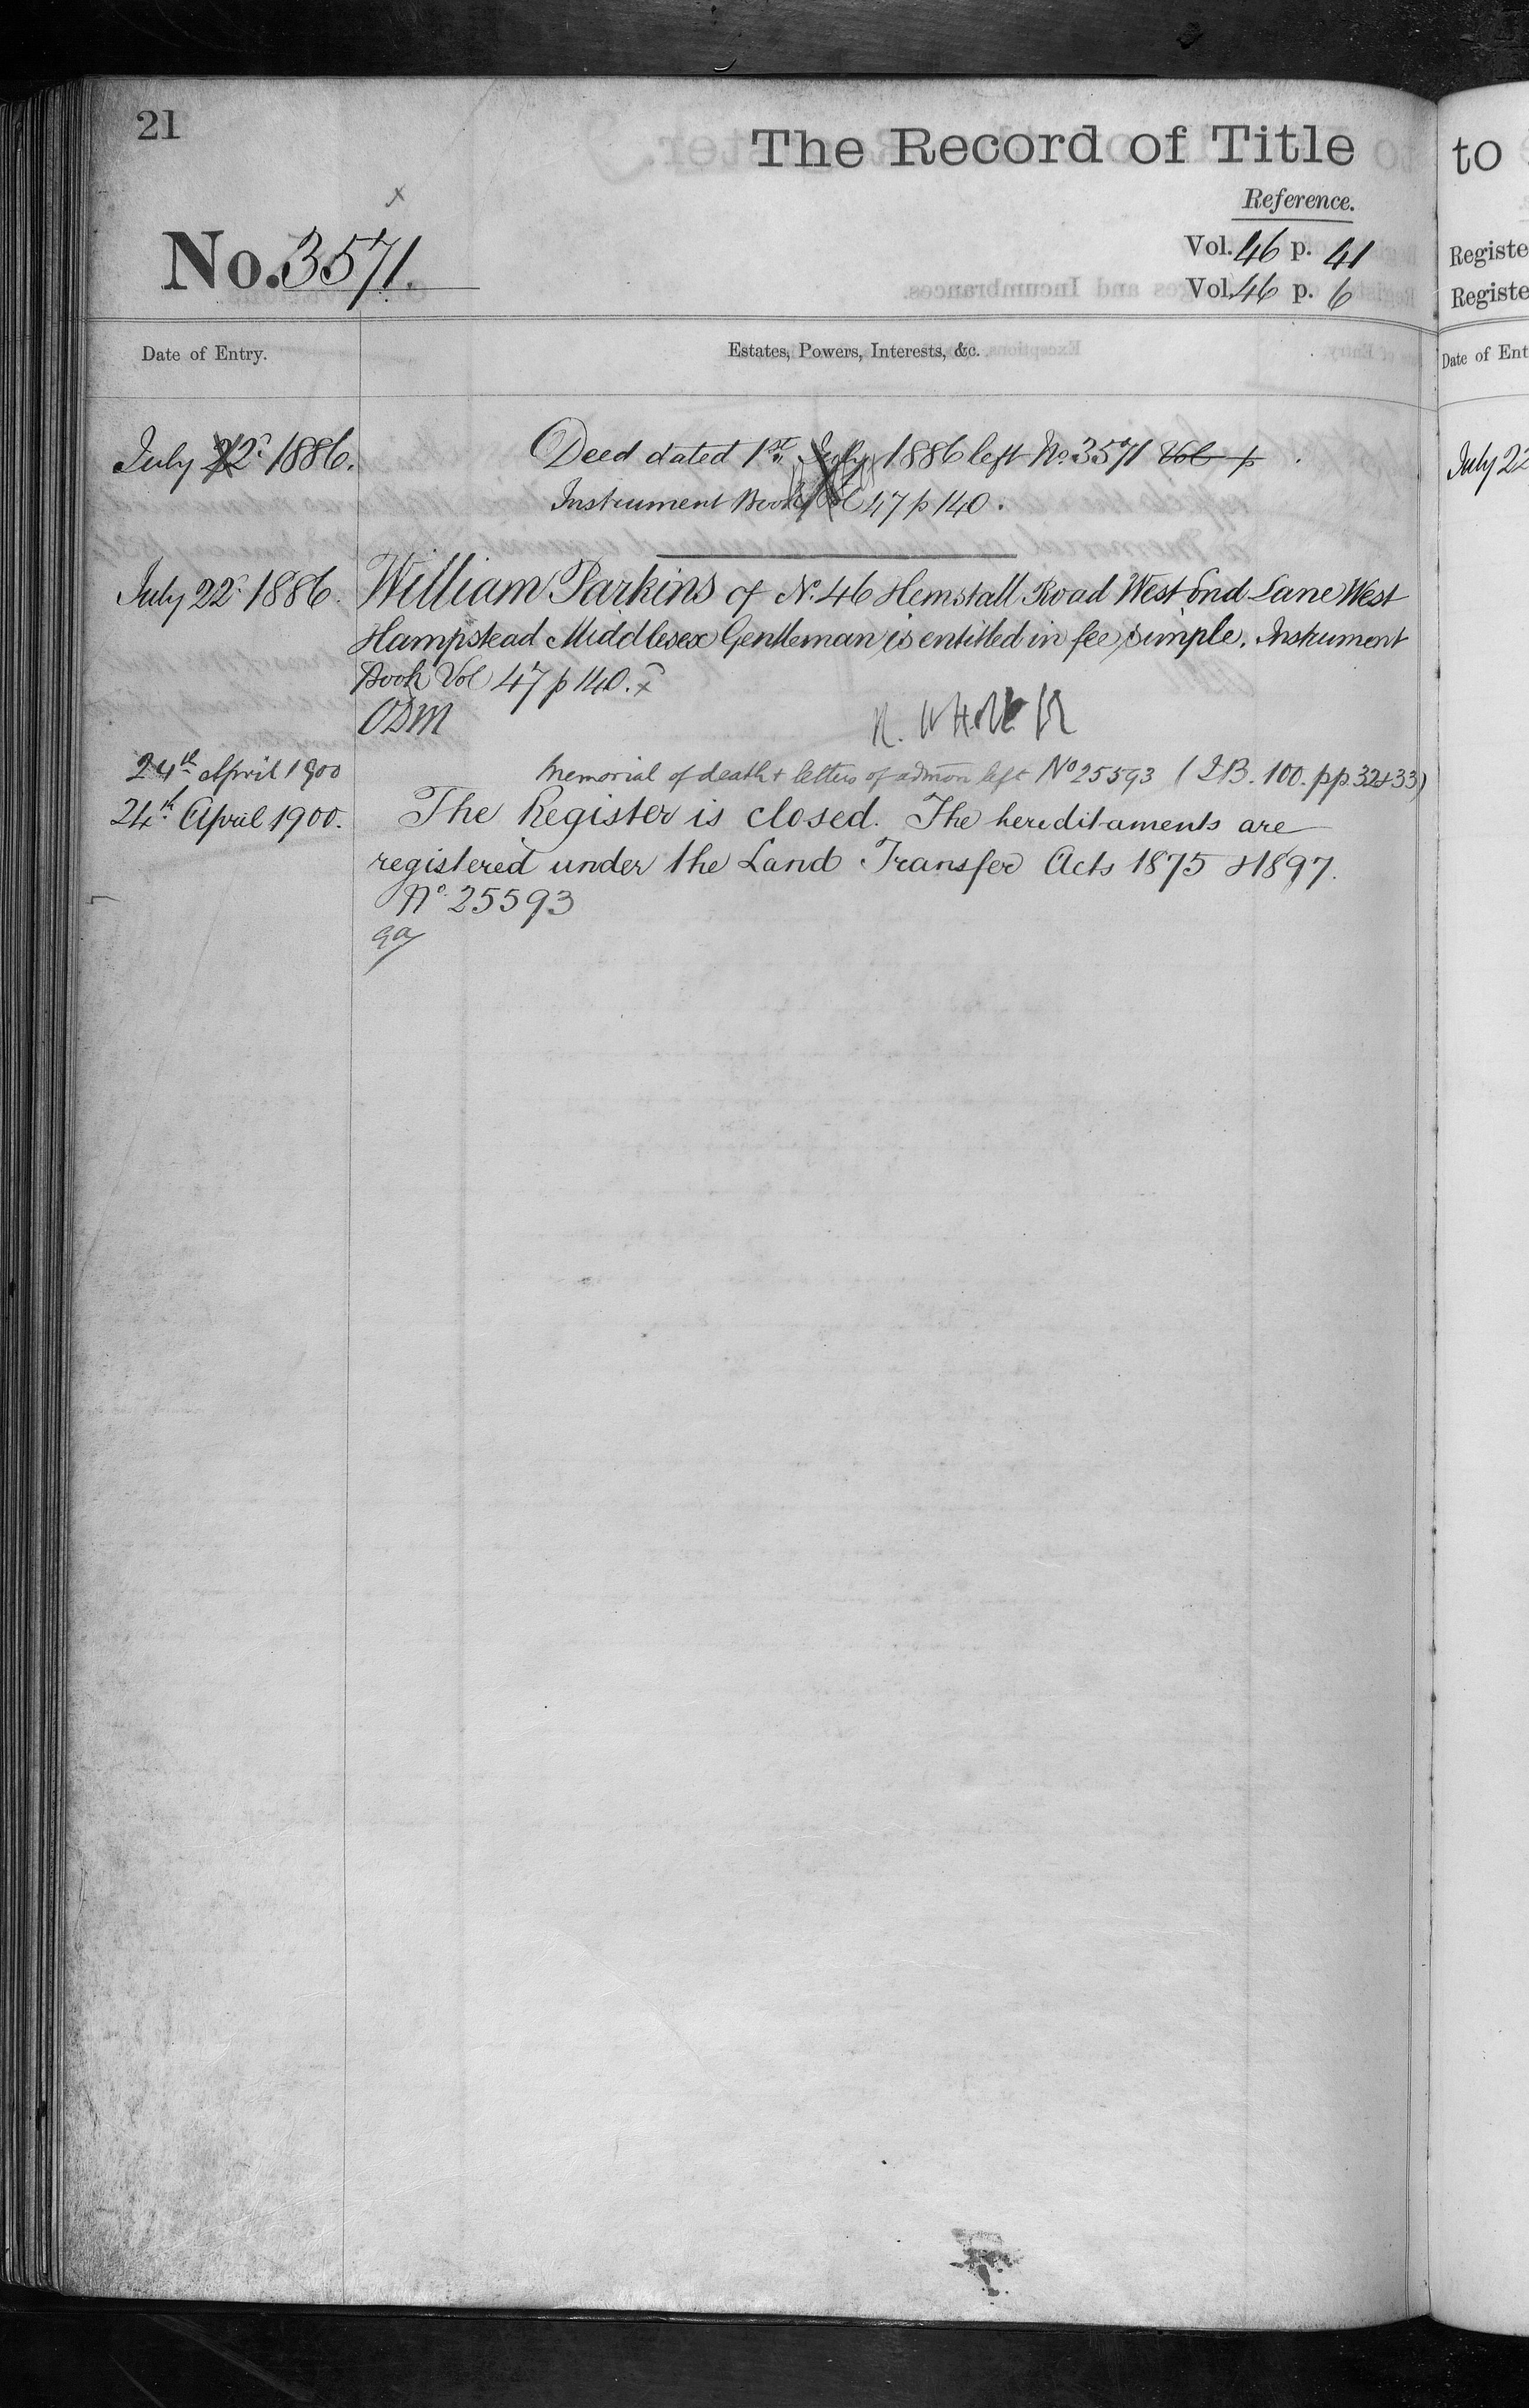 21
The Record of Title
to
Reference.
No. 3571.
Vol. 46 p. 41
Vol. 46 p. 6
Registe
Registe
Date of Entry.
Estates, Powers, Interests, &c.
Date of Ent
July 22d 1886.
Deed dated 1st July 1886 left No. 3571 Vol p
Instrument Book Vol 47 p 140.
July 22
July 22d 1886.
William Parkins of No. 46 Hemstall Road West End Lane West
Hampstead Middlesex Gentleman is entitled in fee simple. Instrument
Book Vol 47 p 140. x
24th April 1900
Memorial of death & letters of admon left No 25593 (I.B. 100. pp. 32 & 33)
24th April 1900.
The Register is closed. The hereditaments are
registered under the Land Transfer Acts 1875 & 1897.
No. 25593